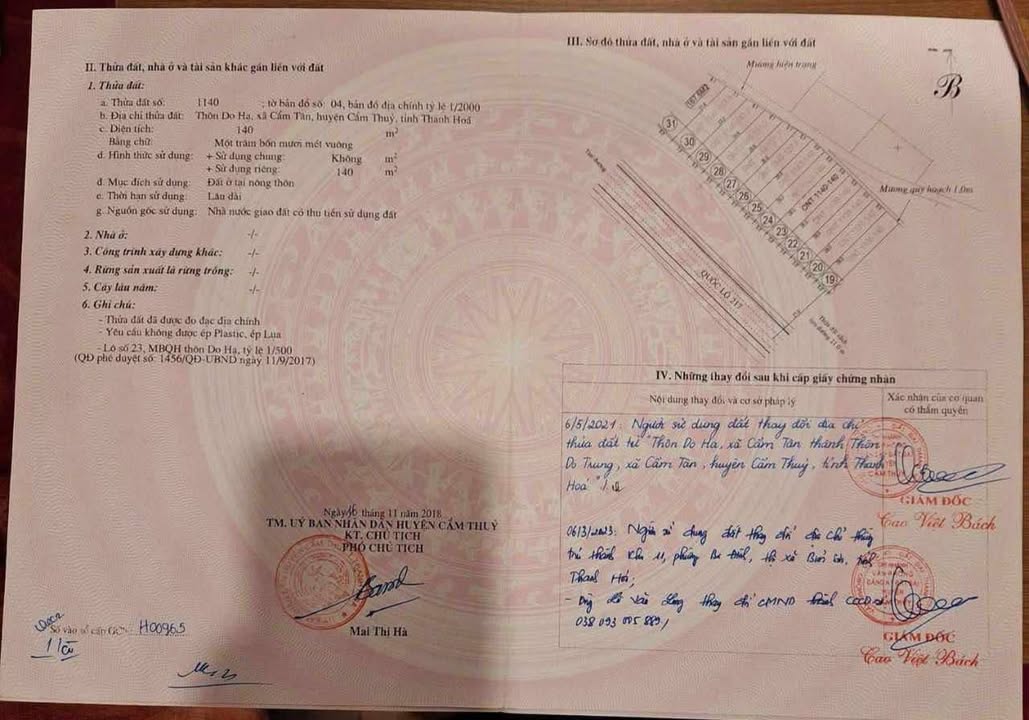 II. Thửa đất, nhà ở và tài sản khác gắn liền với đất
1. Thửa đất:
a. Thửa đất số: 1140 ; tờ bản đồ số: 04, bản đồ địa chính tỷ lệ 1/2000
b. Địa chỉ thửa đất: Thôn Do Hạ, xã Cẩm Tân, huyện Cẩm Thuỷ, tỉnh Thanh Hoá
c. Diện tích: 140 m²
Bằng chữ: Một trăm bốn mươi mét vuông
d. Hình thức sử dụng: + Sử dụng chung: Không m²
+ Sử dụng riêng: 140 m²
đ. Mục đích sử dụng: Đất ở tại nông thôn
e. Thời hạn sử dụng: Lâu dài
g. Nguồn gốc sử dụng: Nhà nước giao đất có thu tiền sử dụng đất
2. Nhà ở: -/-
3. Công trình xây dựng khác: -/-
4. Rừng sản xuất là rừng trồng: -/-
5. Cây lâu năm: -/-
6. Ghi chú:
- Thửa đất đã được đo đạc địa chính
- Yêu cầu không được ép Plastic, ép Lua
- Lô số 23, MBQH thôn Do Hạ, tỷ lệ 1/500
(QĐ phê duyệt số: 1456/QĐ-UBND ngày 11/9/2017)
Ngày 16 tháng 11 năm 2018
TM. UỶ BAN NHÂN DÂN HUYỆN CẨM THUỶ
KT. CHỦ TỊCH
PHÓ CHỦ TỊCH
Mai Thị Hà
Số vào sổ cấp GCN: H00965
III. Sơ đồ thửa đất, nhà ở và tài sản gắn liền với đất
Mương hiện trạng
B
31
30
29
28
27
26
25
24
23
22
21
20
19
ONT 1140-140
Mương quy hoạch 1.0m
QUỐC LỘ 217
IV. Những thay đổi sau khi cấp giấy chứng nhận
Nội dung thay đổi và cơ sở pháp lý
Xác nhận của cơ quan
có thẩm quyền
6/5/2021: Người sử dụng đất thay đổi địa chỉ
thửa đất từ "Thôn Do Hạ, xã Cẩm Tân thành Thôn
Do Trung, xã Cẩm Tân, huyện Cẩm Thuỷ, tỉnh Thanh
Hoá"
GIÁM ĐỐC
Cao Việt Bách
06/3/2023: Người sử dụng đất thay đổi địa chỉ thường
trú thành khu 11, phường Ba Đình, thị xã Bỉm Sơn, tỉnh
Thanh Hoá;
- Ông Lê Văn thay đổi CMND thành CCCD số
038 093 005 889
GIÁM ĐỐC
Cao Việt Bách